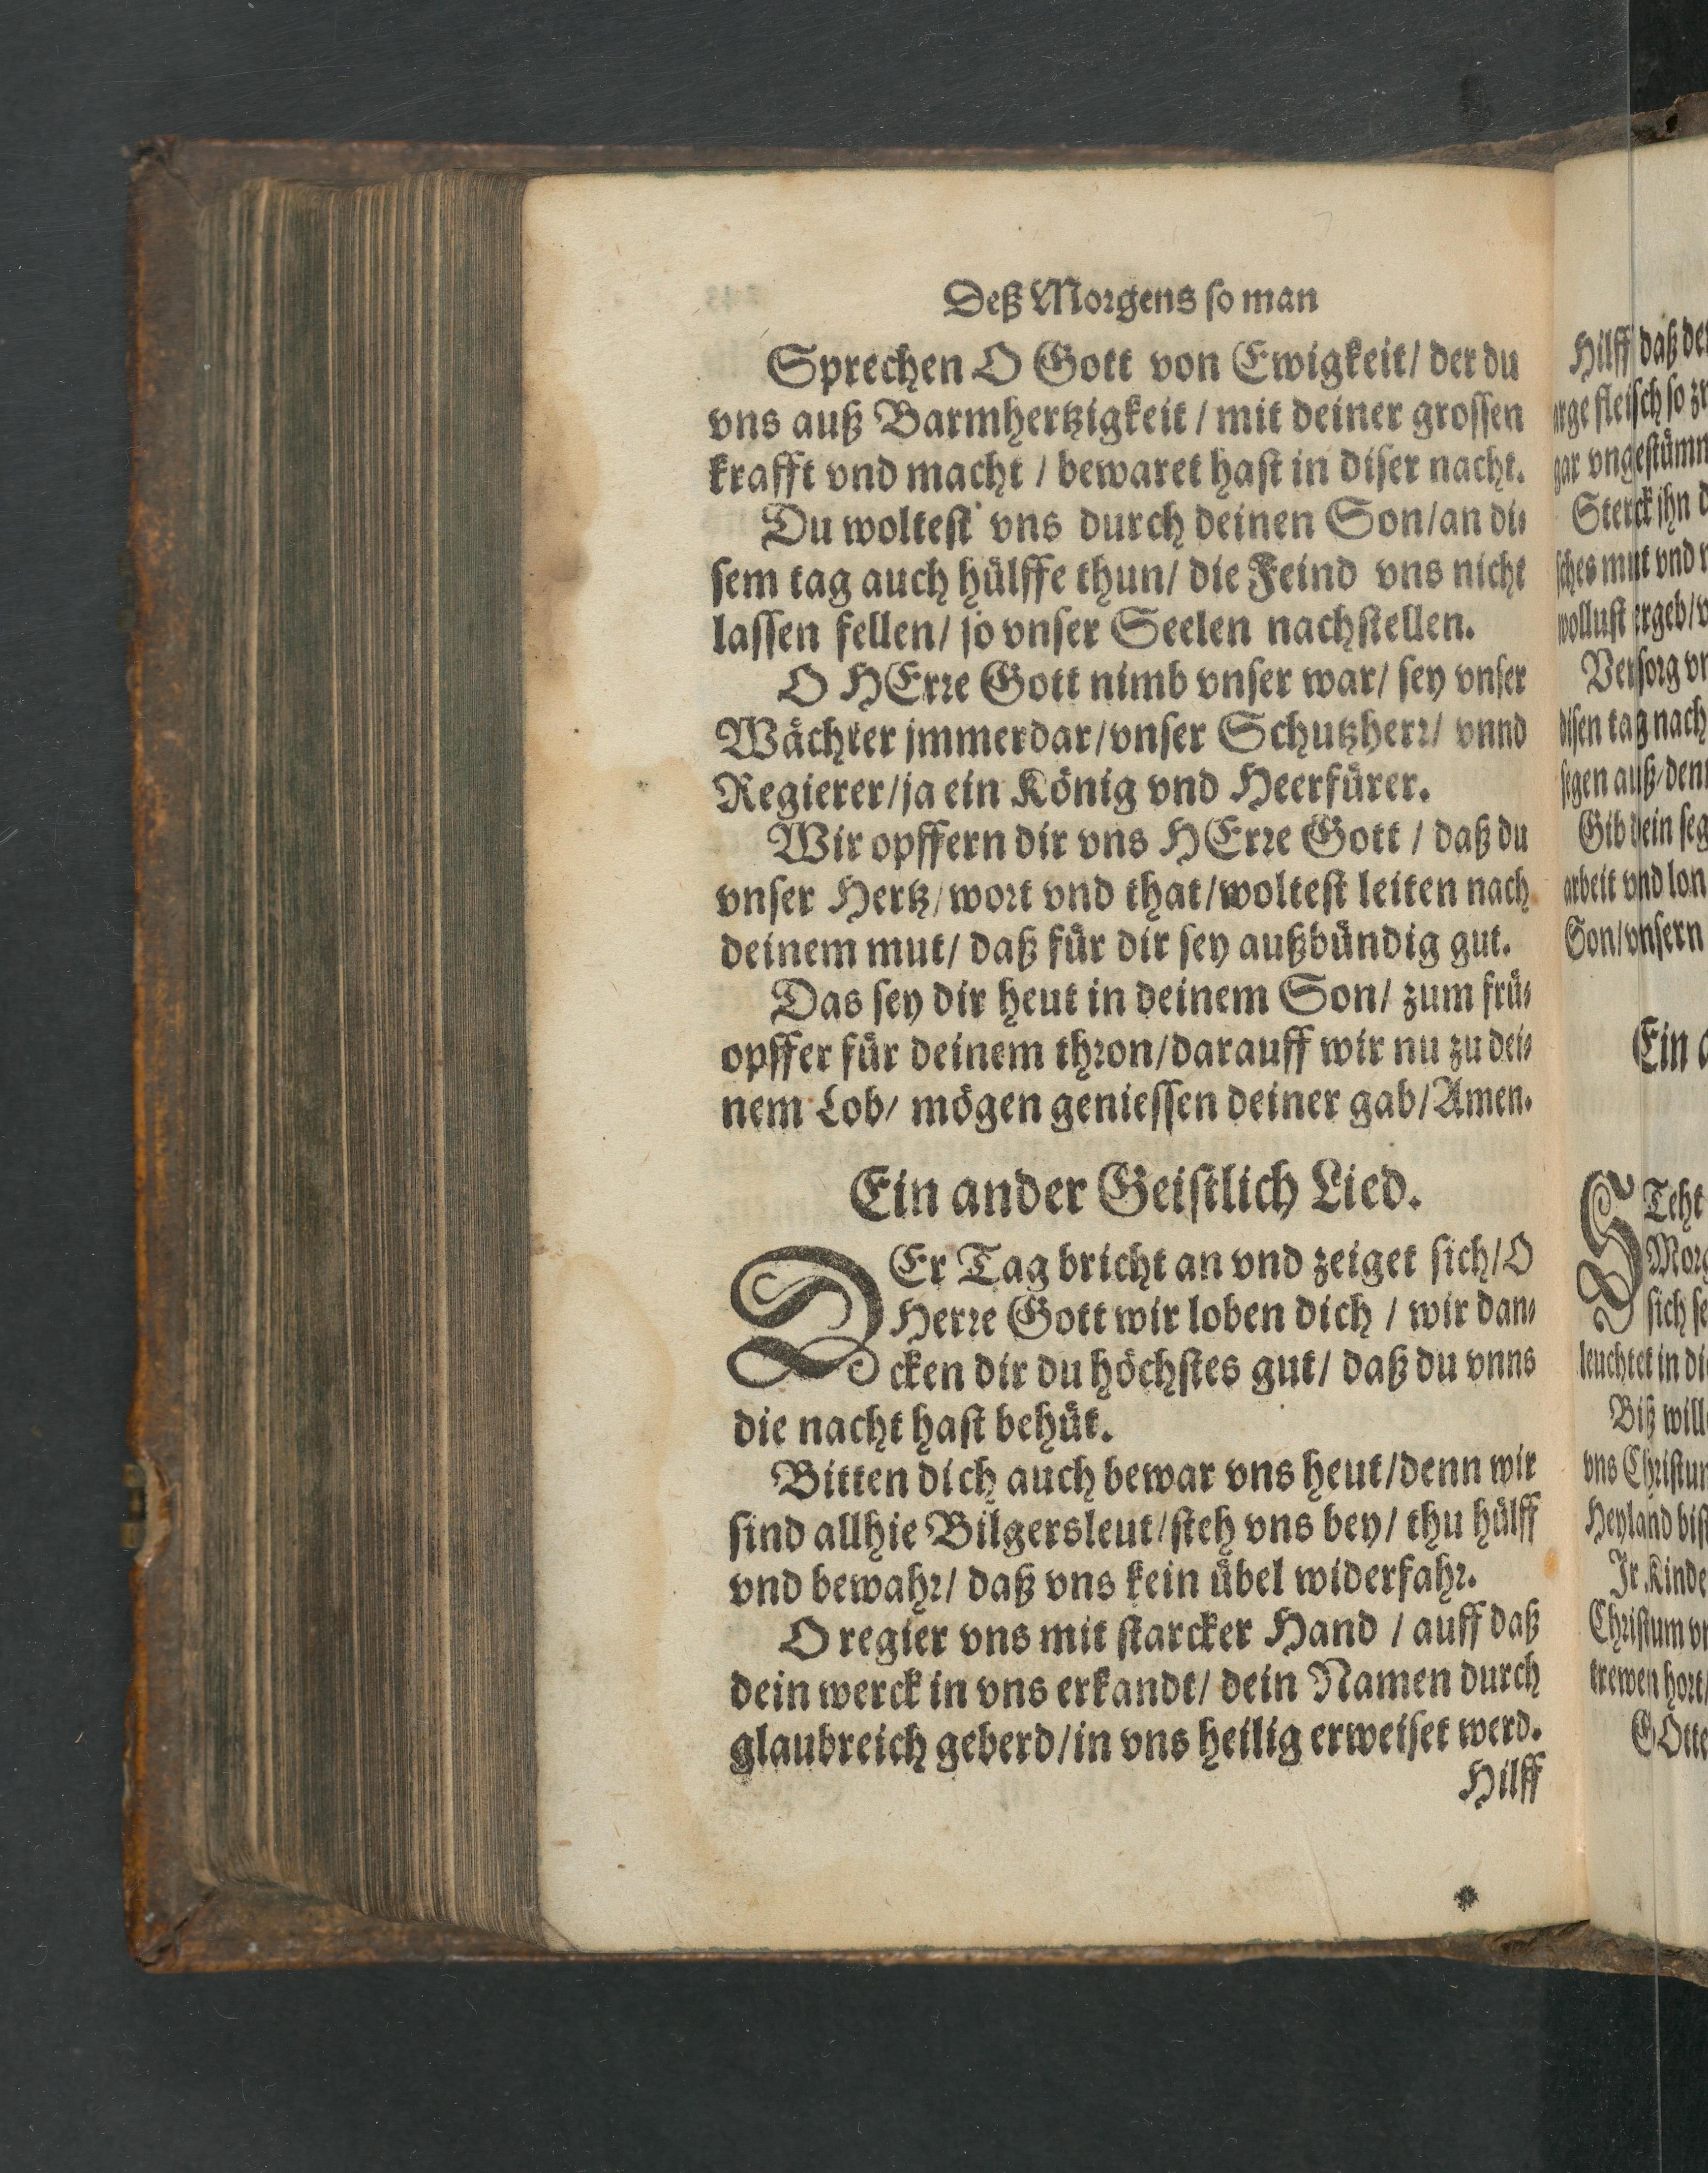 Deß Morgens so man
Sprechen O Gott von Ewigkeit/ der du
vns auß Barmhertzigkeit / mit deiner grossen
krafft vnd macht / bewaret hast in diser nacht.
Du woltest vns durch deinen Son/an di-
sem tag auch hülffe thun/ die Feind vns nicht
lassen fellen/ so vnser Seelen nachstellen.
O HErre Gott nimb vnser war/ sey vnser
Wächter jmmerdar/vnser Schutzherr/ vnnd
Regierer/ja ein König vnd Heerfürer.
Wir opffern dir vns HErre Gott / daß du
vnser Hertz/wort vnd that/woltest leiten nach
deinem mut/ daß für dir sey außbündig gut.
Das sey dir heut in deinem Son/ zum frü-
opffer für deinem thron/darauff wir nu zu dei-
nem Lob/ mögen geniessen deiner gab/Amen.
Ein ander Geistlich Lied.
DEr Tag bricht an vnd zeiget sich/O
Herre Gott wir loben dich / wir dan-
cken dir du höchstes gut/ daß du vnns
die nacht hast behüt.
Bitten dich auch bewar vns heut/denn wir
sind allhie Bilgersleut/steh vns bey/ thu hülff
vnd bewahr/ daß vns kein übel widerfahr.
O regier vns mit starcker Hand / auff daß
dein werck in vns erkandt/ dein Namen durch
glaubreich geberd/in vns heilig erweiset werd.
Hilff
Hilff daß
fleisch so
gar
Sterck ihn
mut vnd
wollust ergeb/
Versorg
disen tag nach
segen auß/
Gib dein
arbeit vnd
Son/vnsern
Ein
STeht
sich
leuchtet in
Biß
vns
Heyland
Jr
Christum
trewen hort/